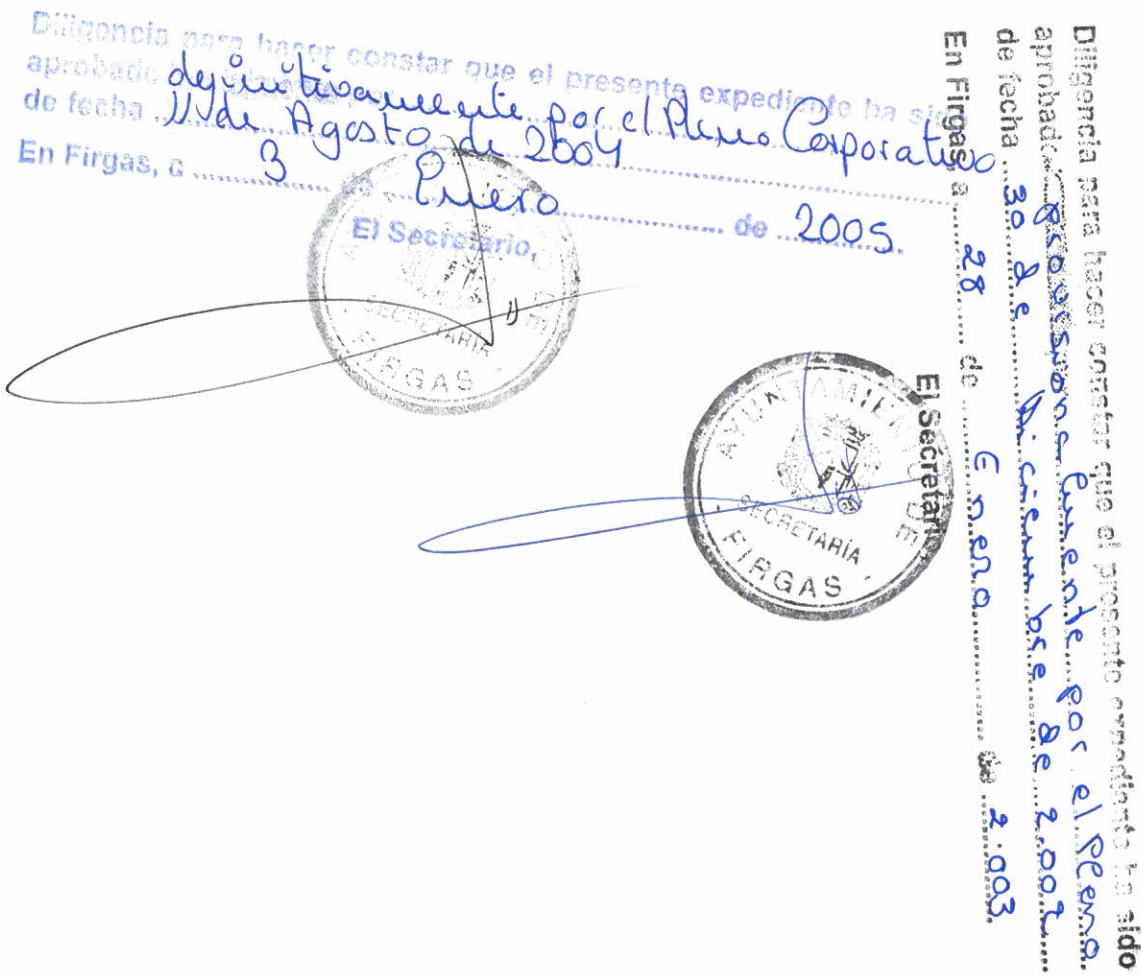 Diligencia para hacer constar que el presente expediente ha sido
aprobado definitivamente por el Pleno Corporativo
de fecha 11 de Agosto de 2004
En Firgas, a 3 de Enero de 2005.
El Secretario,
SECRETARIA
FIRGAS
Diligencia para hacer constar que el presente expediente ha sido
aprobado provisionalmente por el Pleno
de fecha 30 de Diciembre de 2.002
En Firgas, a 28 de Enero de 2.003
El Secretario
AYUNTAMIENTO DE
SECRETARÍA
FIRGAS